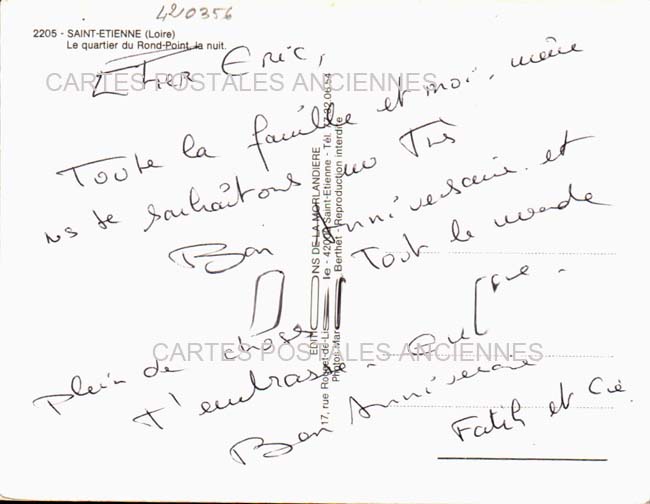 420356
2205 - SAINT-ETIENNE (Loire)
Le quartier du Rond-Point, la nuit.
Cher Eric,
CARTES POSTALES ANCIENNES
Toute la famille et moi, même
ns te souhaitons un Très
Bon Anniversaire et
Tout le monde
Plein de choses
t'embrasse
Bon Anniversaire
Fatih et Cie
CARTES POSTALES ANCIENNES
NS DE LA MORLANDIERE
17, rue - 42000 Saint-Etienne - Tél. 77.32.06.54
Photos Berthet - Reproduction interdite